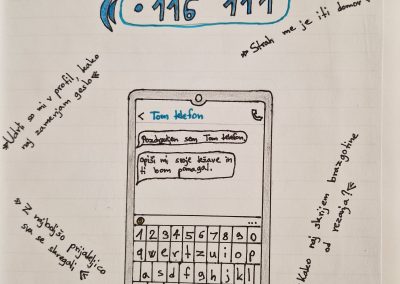 116 111
»Strah me je iti domov«
»Vdrli so mi v profil, kako
naj zamenjam geslo«
< Tom telefon
Pozdravljen sem Tom telefon.
Opiši mi svoje težave in
ti bom pomagal.
»Z najboljšo prijateljico
sva se skregali«
»Kako naj skrijem brazgotine
od rezanja?«
...
1 2 3 4 5 6 7 8 9 0
q w e r t z u i o p
a s d f g h j k l